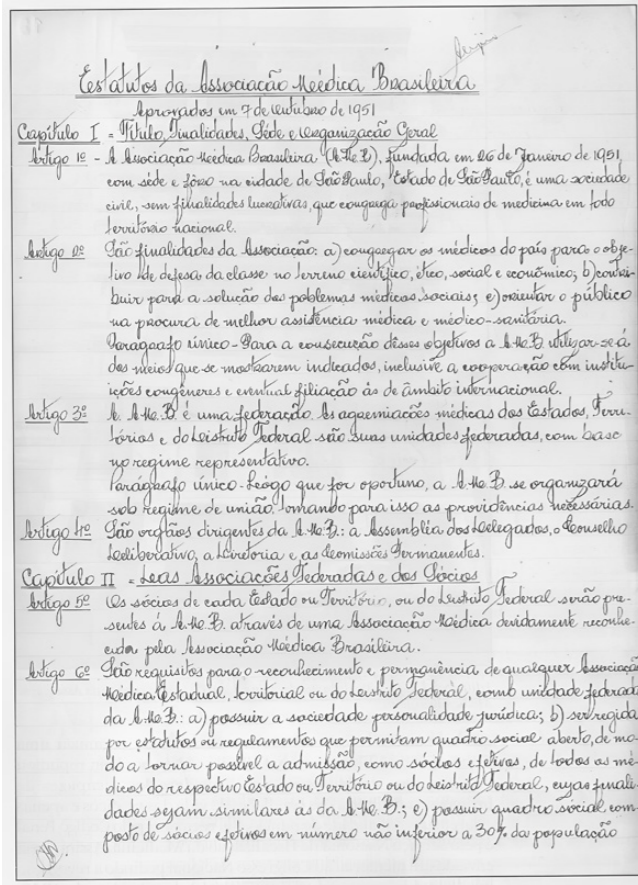 Estatutos da Associação Médica Brasileira
Aprovados em 7 de Outubro de 1951
Capítulo I = Título, Finalidades, Séde e Organização Geral
Artigo 1º - A Associação Médica Brasileira (A.M.B.), fundada em 26 de Janeiro de 1951,
com séde e fôro na cidade de São Paulo, Estado de São Paulo, é uma sociedade
civil, sem finalidades lucrativas, que congrega profissionais de medicina em todo
território nacional.
Artigo 2º São finalidades da Associação: a) congregar os médicos do país para o obje-
tivo de defesa da classe no terreno científico, ético, social e econômico; b) contri-
buir para a solução dos problemas médicos sociais; c) orientar o público
na procura de melhor assistência médica e médico-sanitária.
Paragrafo único - Para a consecução dêsses objetivos a A.M.B. utilizar-se-á
dos meios que se mostrarem indicados, inclusive a cooperação com institu-
ições congêneres e eventual filiação às de âmbito internacional.
Artigo 3º A A.M.B. é uma federação. As agremiações médicas dos Estados, Terri-
tórios e do Distrito Federal são suas unidades federadas, com base
no regime representativo.
Parágrafo único - Lôgo que for oportuno, a A.M.B. se organizará
sob regime de união, tomando para isso as providências necessárias.
Artigo 4º São orgãos dirigentes da A.M.B.: a Assembléia dos Delegados, o Conselho
Deliberativo, a Diretoria e as Comissões Permanentes.
Capítulo II = Das Associações Federadas e dos Sócios
Artigo 5º Os sócios de cada Estado ou Território, ou do Distrito Federal serão pre-
sentes à A.M.B. através de uma Associação Médica devidamente reconhe-
cida pela Associação Médica Brasileira.
Artigo 6º São requisitos para o reconhecimento e permanência de qualquer Associação
Médica Estadual, territorial ou do Distrito Federal, como unidade federada
da A.M.B.: a) possuir a sociedade personalidade jurídica; b) ser regida
por estatutos ou regulamentos que permitam quadro social aberto, de mo-
do a tornar possível a admissão, como sócios efetivos, de todos os mé-
dicos do respectivo Estado ou Território ou do Distrito Federal, cujas finali-
dades sejam similares às da A.M.B.; c) possuir quadro social com-
posto de sócios efetivos em número não inferior a 30% da população